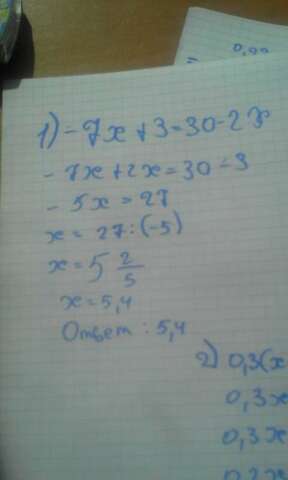 0,99
=
1) -7x+3=30-2x
-7x+2x=30-3
-5x=27
x=27:(-5)
x=5 2/5
x=5,4
Ответ: 5,4
2) 0,3(x
0,3x
0,3x
0,2x